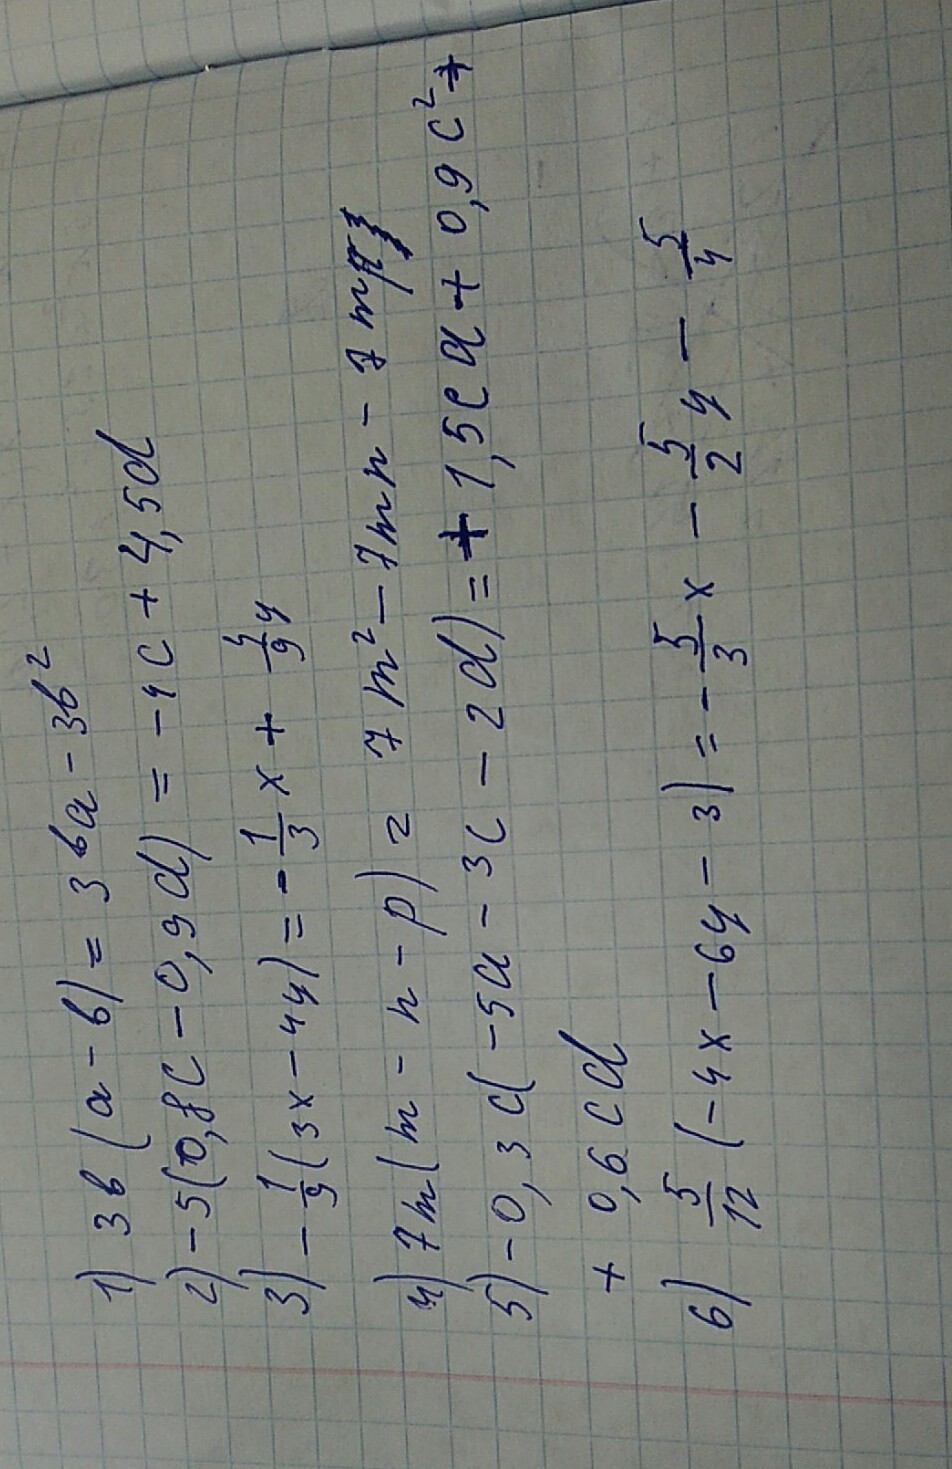 1) 3b(a-b)=3ba-3b²
2) -5(0,8c-0,9d)=-4c+4,5d
3) -1/9(3x-4y)=-1/3x+4/9y
4) 7m(m-n-p)=7m²-7mn-7mp
5) -0,3c(-5a-3c-2d)=+1,5ca+0,9c²+
+0,6cd
6) 5/12(-4x-6y-3)=-5/3x-5/2y-5/4